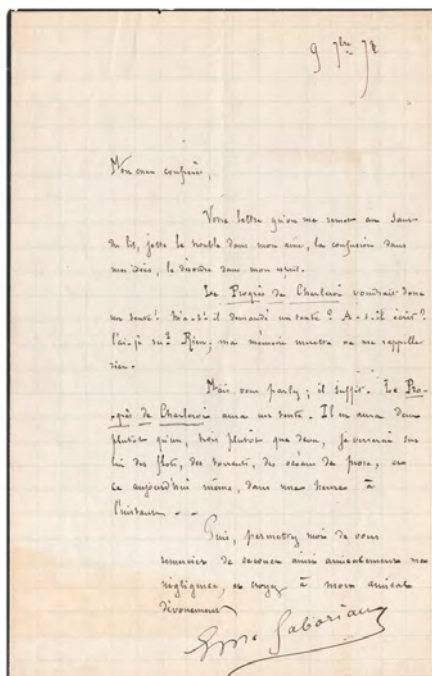 9 7bre 72
Mon cher confrère,
Votre lettre qu'on me remet au saut
du lit, jette le trouble dans mon âme, la confusion dans
mes idées, le désordre dans mon esprit.
Le Progrès de Charleroi voudrait donc
un texte? M'a-t-il demandé un texte? A-t-il écrit?
l'ai-je su? Rien; ma mémoire ne me rappelle
rien.
Mais vous parlez; il suffit. Le Pro-
grès de Charleroi aura un texte. Il en aura deux
plutôt qu'un, trois plutôt que deux, je verserai sur
lui des flots, des torrents, des océans de prose, et
ce aujourd'hui même, dans une heure à
l'instant - -
Puis, permettez moi de vous
remercier de secouer ainsi amicalement ma
négligence, et croyez à mon amical
dévouement
Emile Gaboriau